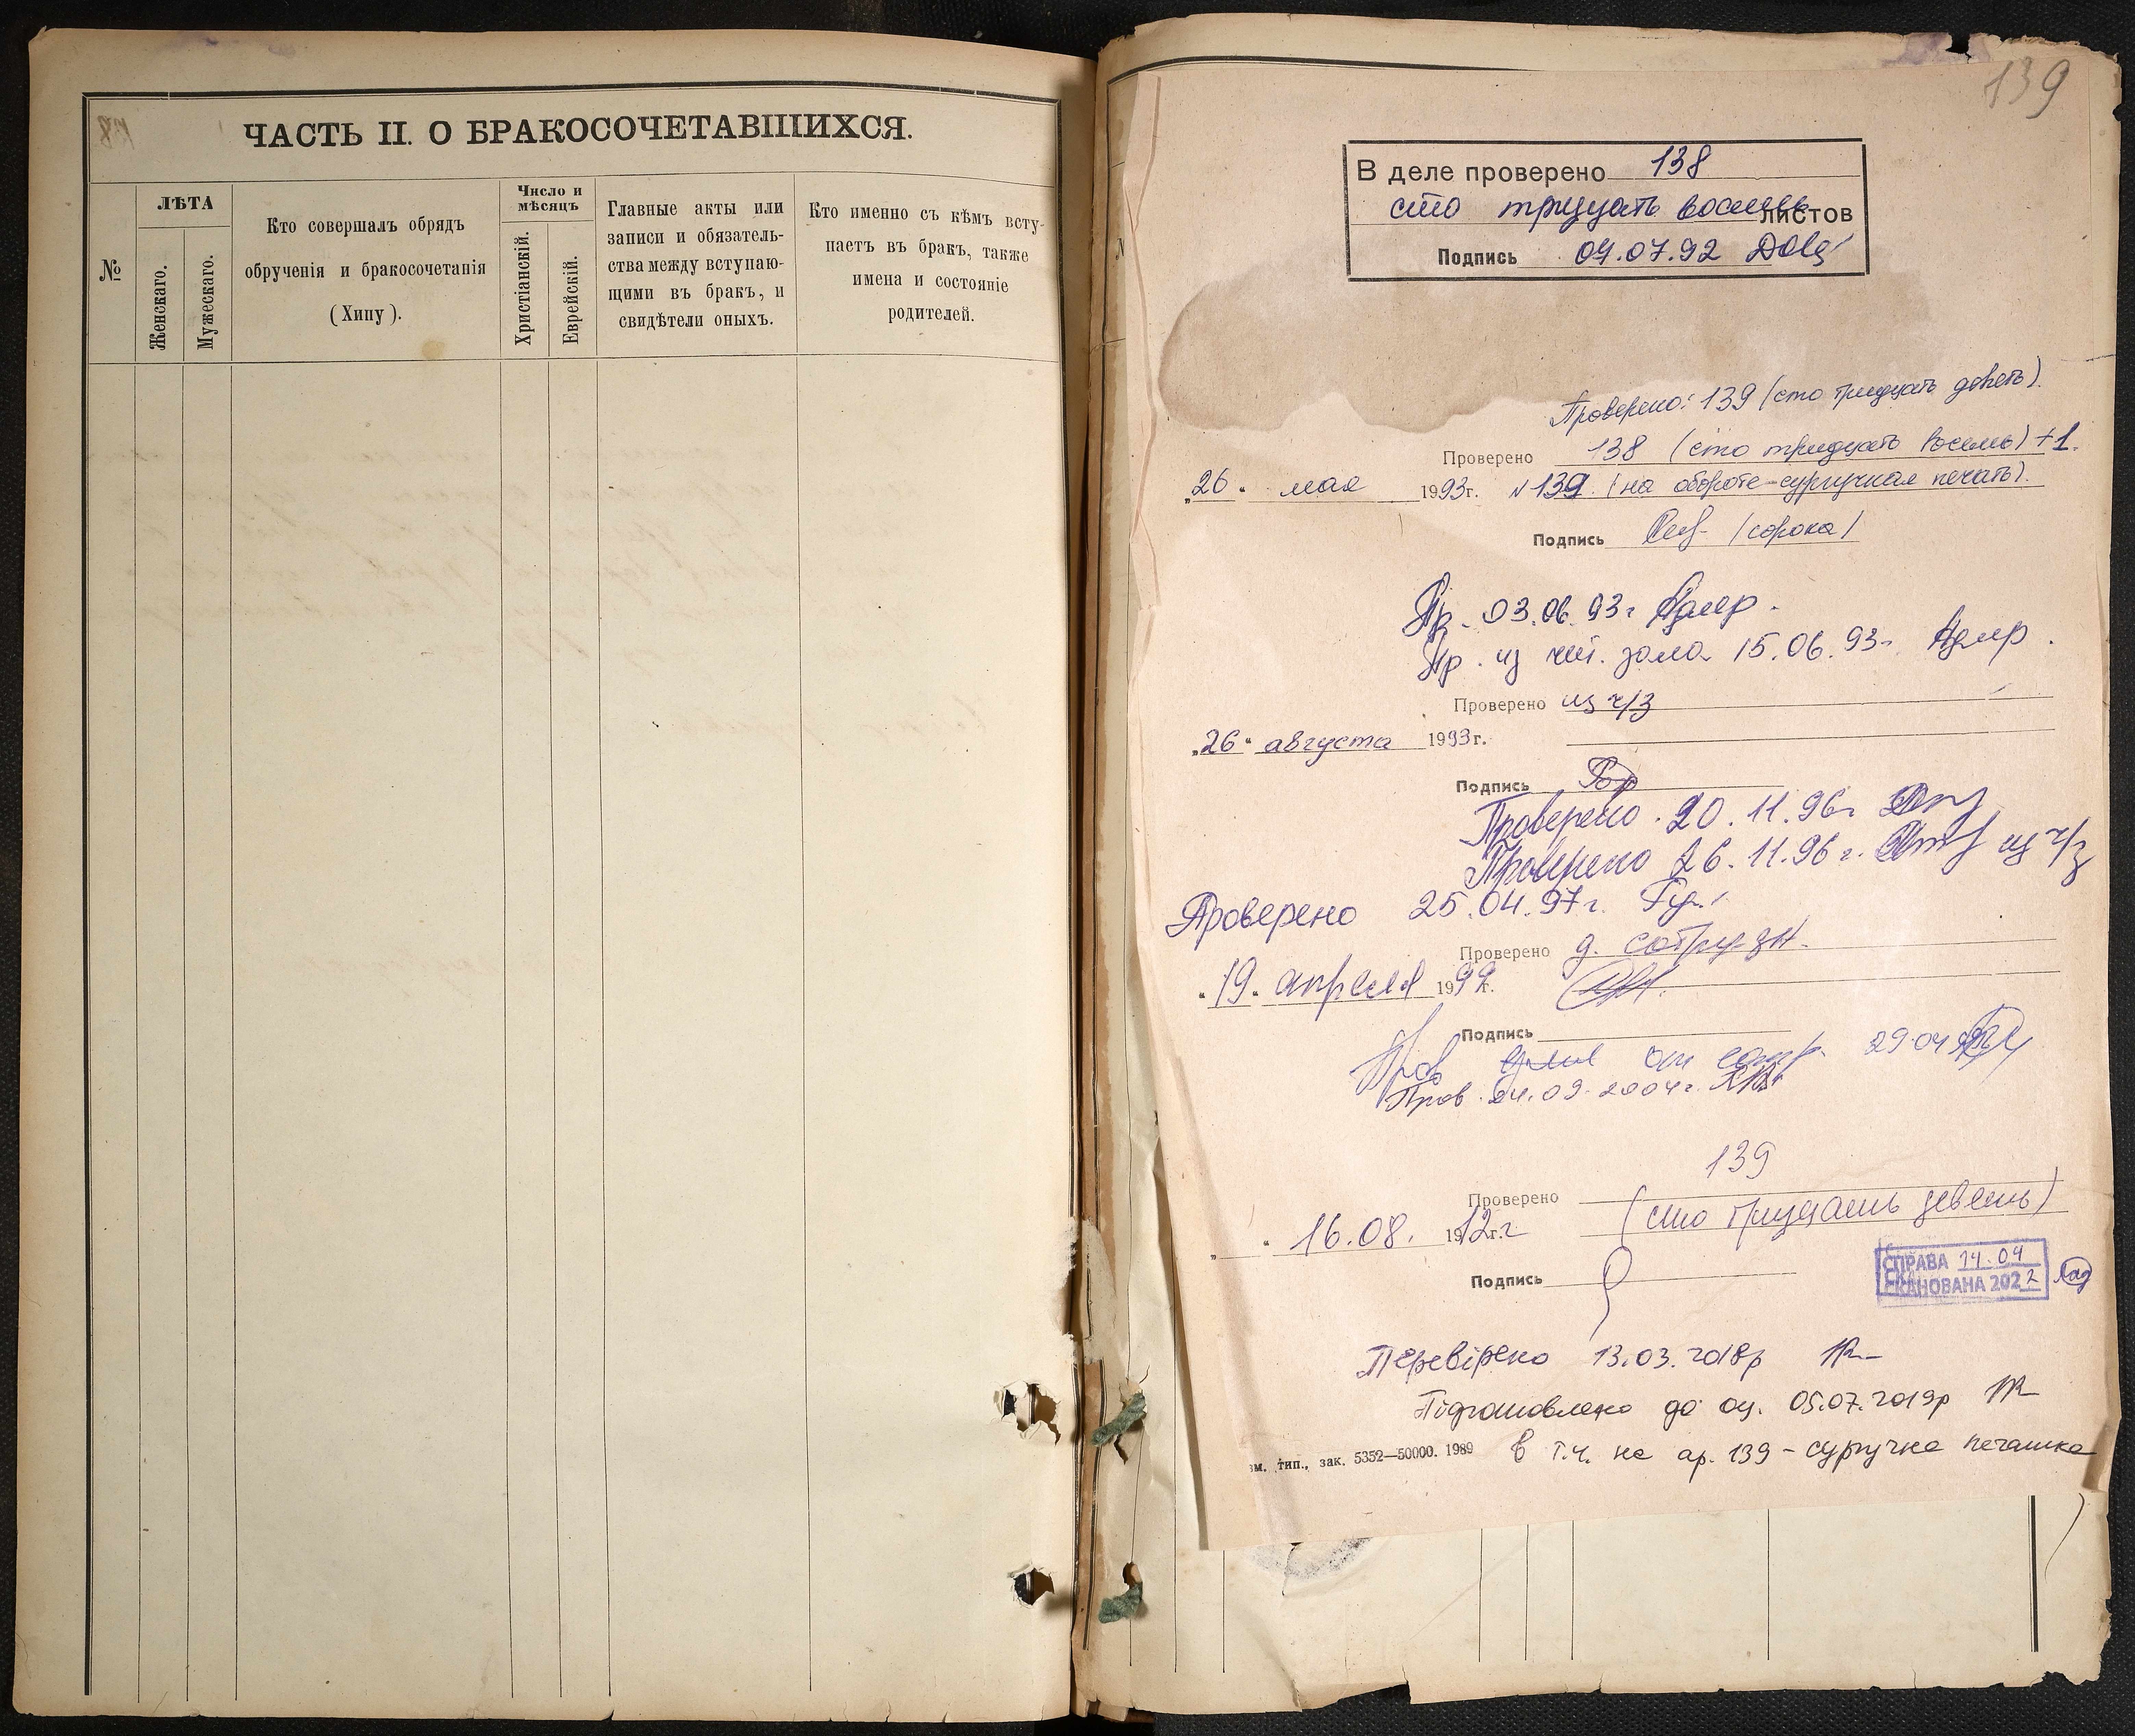 ЧАСТЬ II. О БРАКОСОЧЕТАВШИХСЯ.
№
ЛѢТА
Женскаго.
Мужескаго.
Кто совершалъ обрядъ
обрученія и бракосочетанія
(Хипу).
Число и
мѣсяцъ
Христіанскій.
Еврейскій.
Главные акты или
записи и обязатель-
ства между вступаю-
щими въ бракъ, и
свидѣтели оныхъ.
Кто именно съ кѣмъ всту-
паетъ въ бракъ, также
имена и состояніе
родителей.
139
В деле проверено 138
сто тридцать восемь листов
Подпись 09.07.92
Проверено: 139 (сто тридцать девять).
Проверено 138 (сто тридцать восемь) +1.
„26" мая 1993г. № 139. (на обороте-сургучная печать).
Подпись (сорока)
Пр. 03.06.93г
Пр. из чит. зала 15.06.93г.
Проверено из ч/з
„26" августа 1993г.
Подпись
Проверено 20.11.96г
Проверено 26.11.96г. из ч/з
Проверено 25.04.97г.
Проверено
"19" апреля 1999г.
Подпись
Пров от 29.04
Пров. 24.09.2004г.
139
Проверено (сто тридцать девять)
„ " 16.08. 1912г.г
Подпись
СПРАВА 14.04
СКАНОВАНА 2022
Перевірено 13.03.2018р
Підготовлено до оц. 05.07.2019р
зм. тип., зак. 5352—50000. 1989 в т.ч. на ар. 139 - сургучна печатка